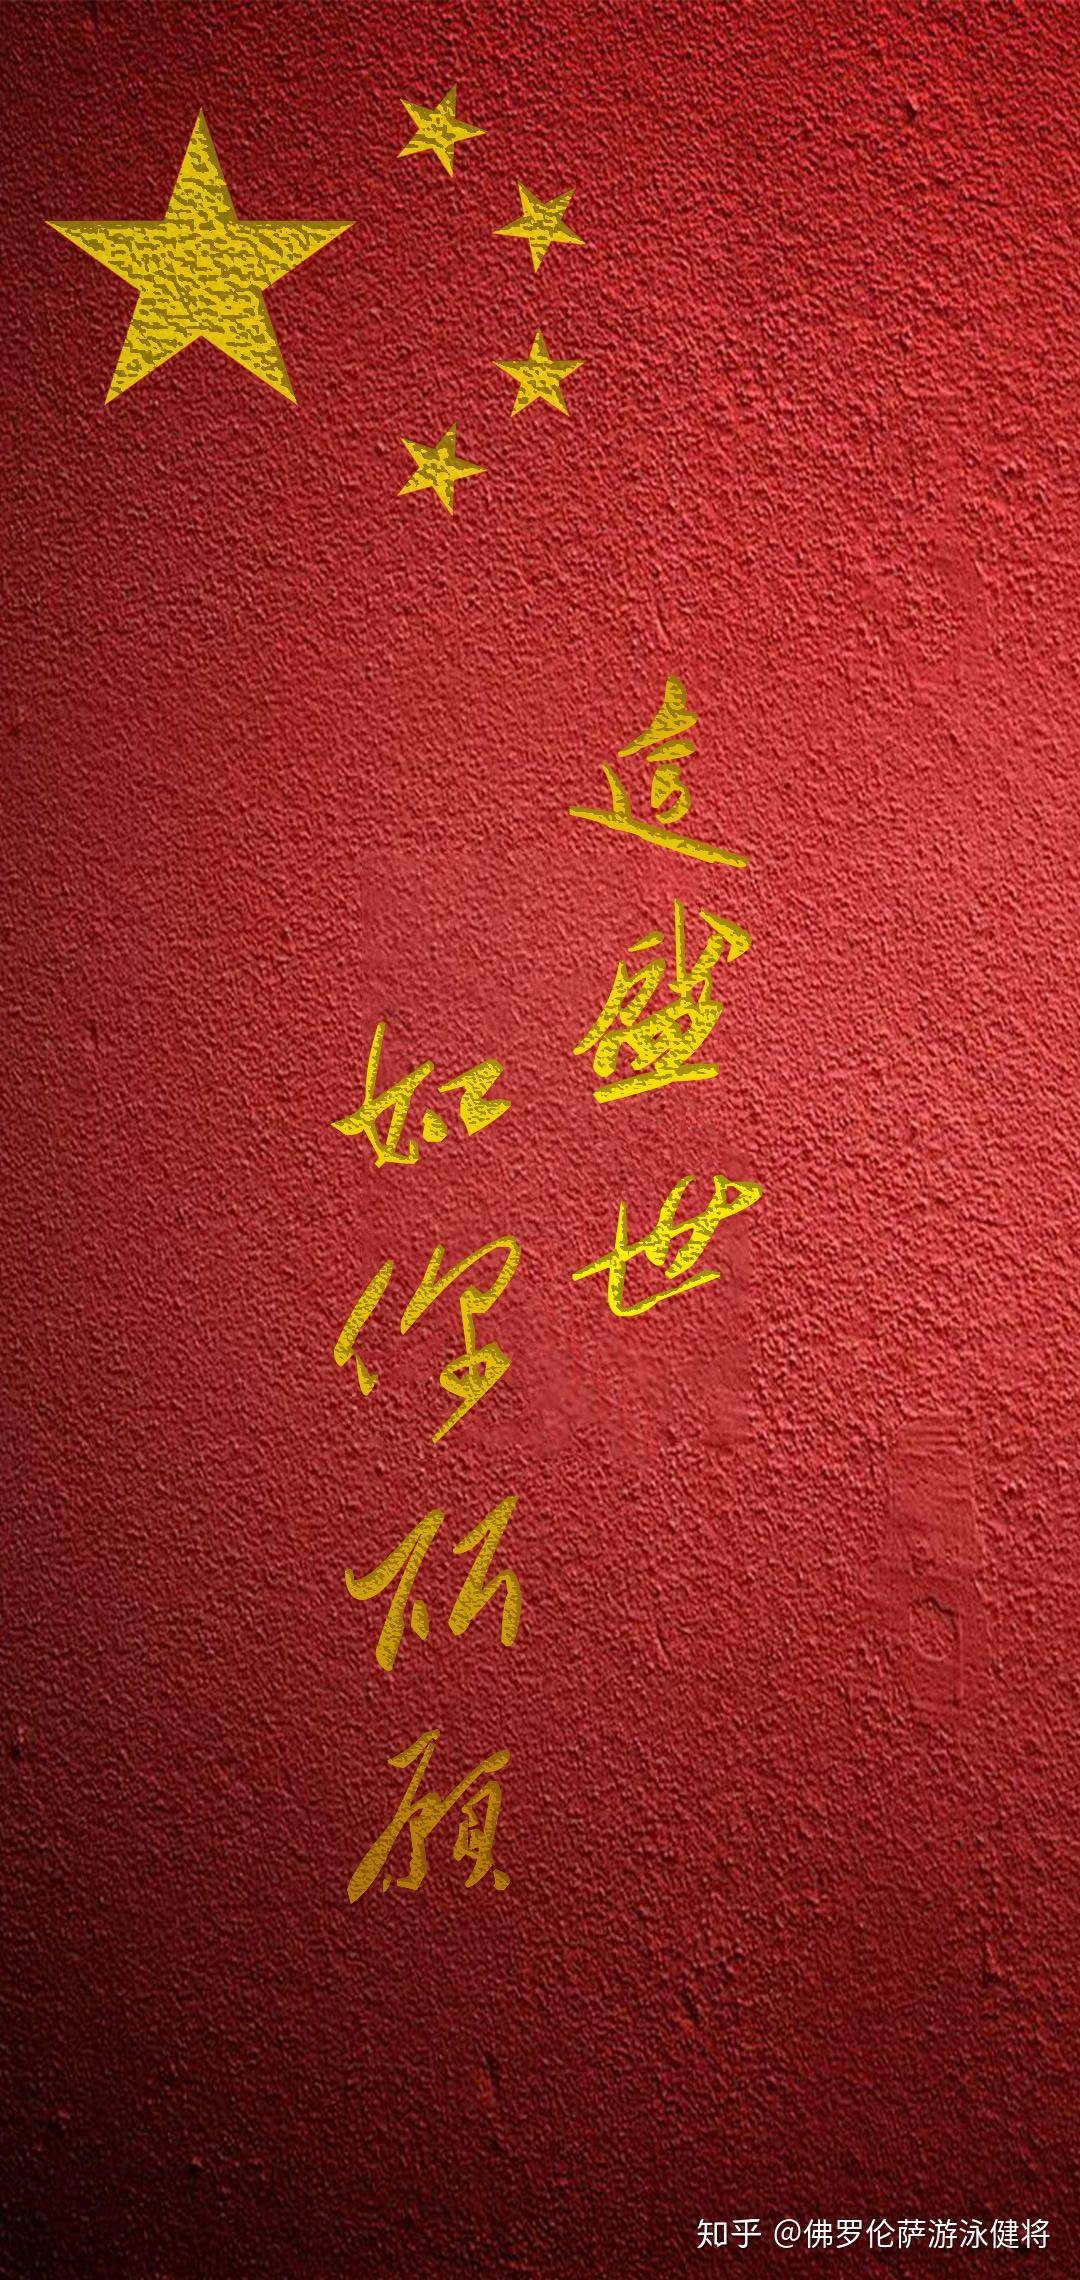 這盛世
如你所願
知乎 @佛罗伦萨游泳健将